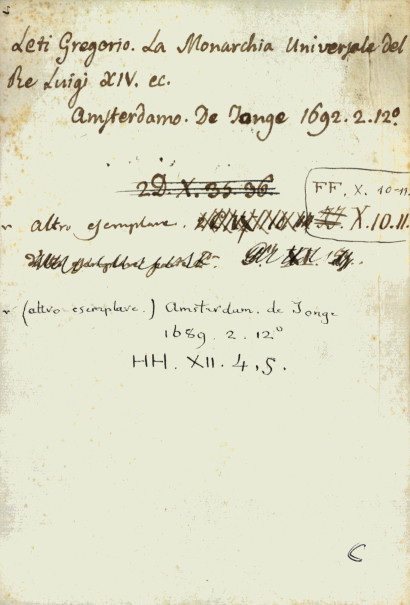 Leti Gregorio. La Monarchia Universale del
Re Luigi XIV. ec.
Amsterdamo. De Jonge 1692. 2. 12º
2D. X. 35. 36.
FF. X. 10-11.
altro esemplare. X. 10. 11.
(altro esemplare.) Amsterdam. de Jonge
1689. 2. 12º
HH. XII. 4, 5.